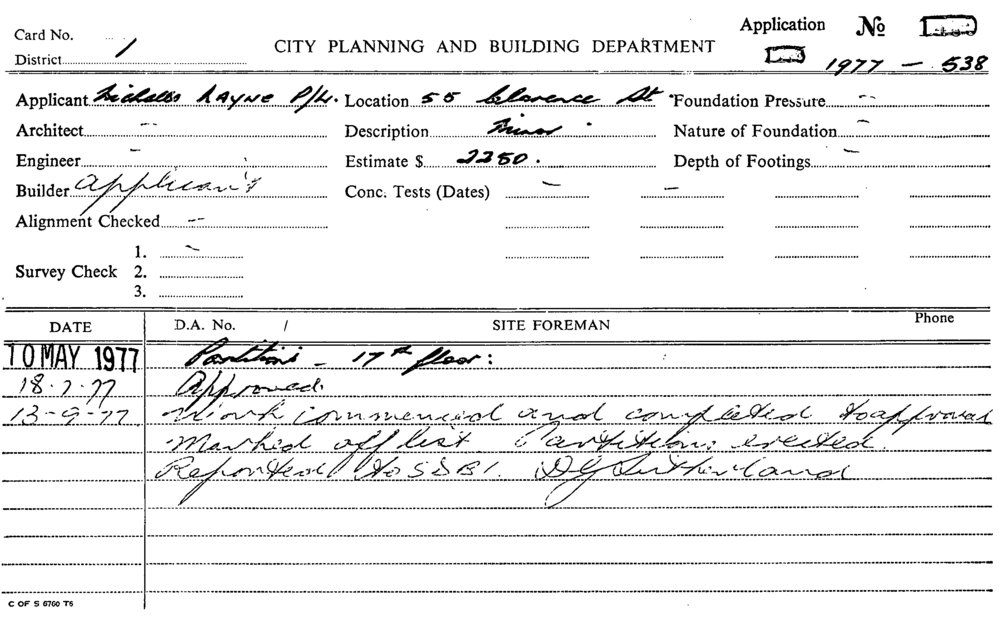 Card No.
Application No
District 1
CITY PLANNING AND BUILDING DEPARTMENT
1977 - 538
Applicant Nicholls Layne P/L. Location 55 Clarence St Foundation Pressure --
Architect -- Description Minor Nature of Foundation -
Engineer - Estimate $ 2250. Depth of Footings -
Builder Applicant Conc. Tests (Dates) - -
Alignment Checked --
1. -
Survey Check 2.
3.
DATE D.A. No. / SITE FOREMAN Phone
10 MAY 1977 Partitions - 17th floor:
18-7-77 Approved
13-9-77 Work commenced and completed to approval
Marked off list Partitions erected
Reported to SDBI. DG Sutherland
C OF S 6760 T6